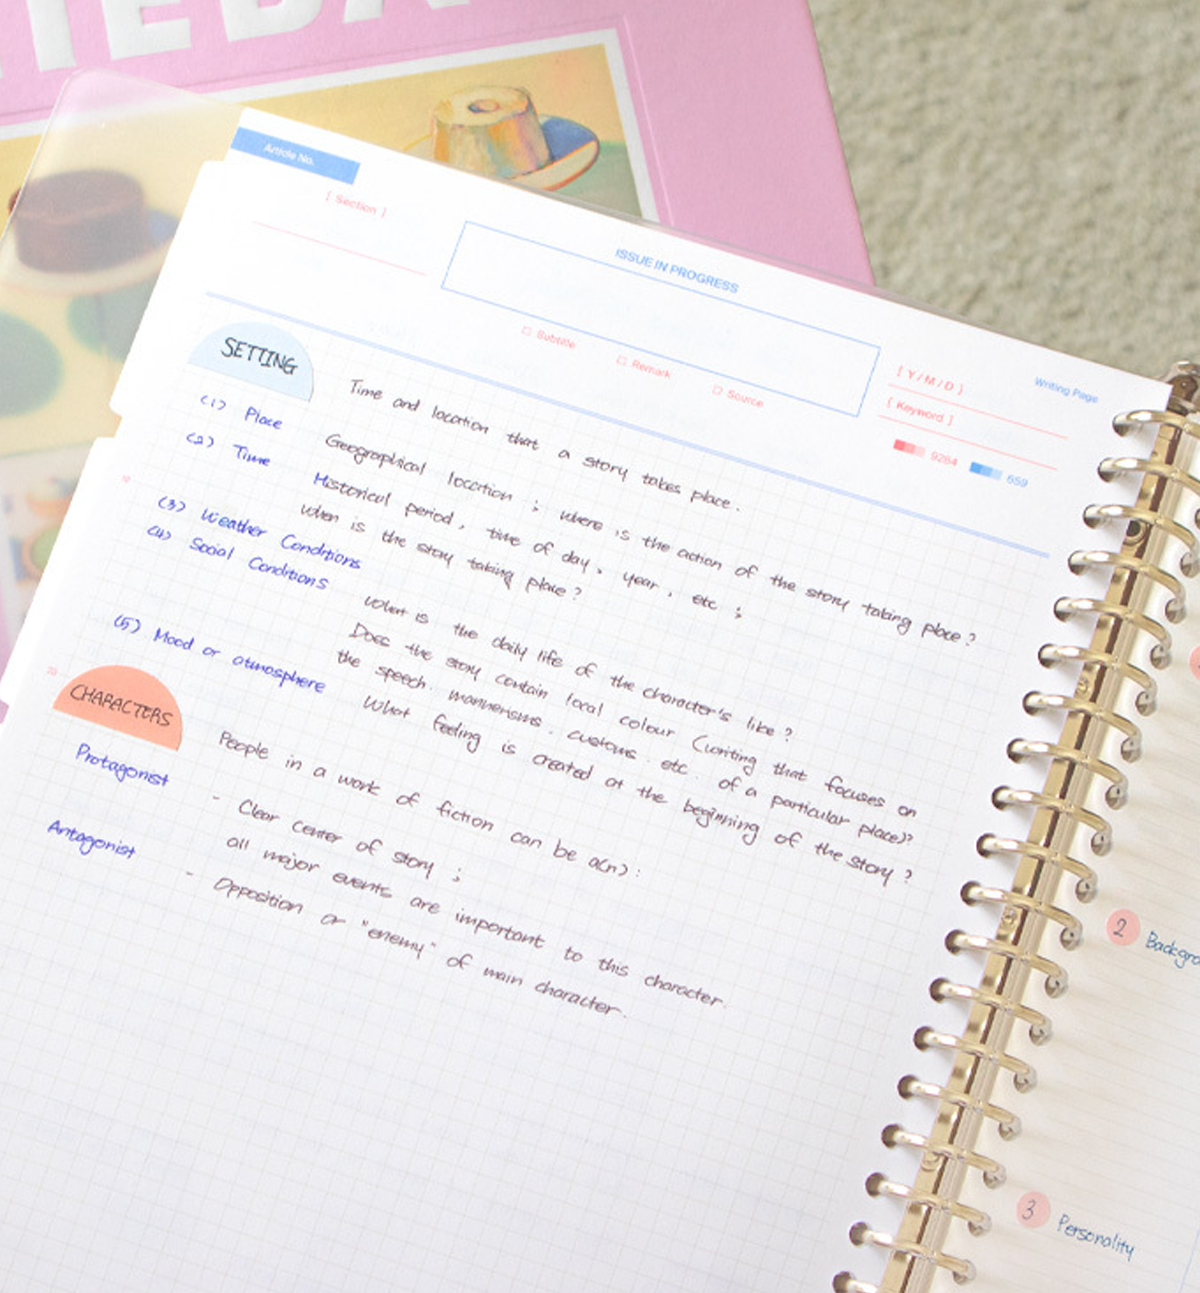 Article No.
[ Section ]
ISSUE IN PROGRESS
☐ Subtitle ☐ Remark ☐ Source
Writing Page
[ Y / M / D ]
[ Keyword ]
9284 659
SETTING
Time and location that a story takes place.
(1) Place
Geographical location ; where is the action of the story taking place?
(2) Time
Historical period, time of day, year, etc ;
when is the story taking place?
(3) Weather Conditions
(4) Social Conditions
What is the daily life of the character's like?
Does the story contain local colour (writing that focuses on
the speech. mannerisms. customs. etc. of a particular place)?
(5) Mood or atmosphere
What feeling is created at the beginning of the story?
CHARACTERS
People in a work of fiction can be a(n) :
Protagonist
- Clear center of story ;
all major events are important to this character.
Antagonist
- Opposition or "enemy" of main character.
2
3 Personality